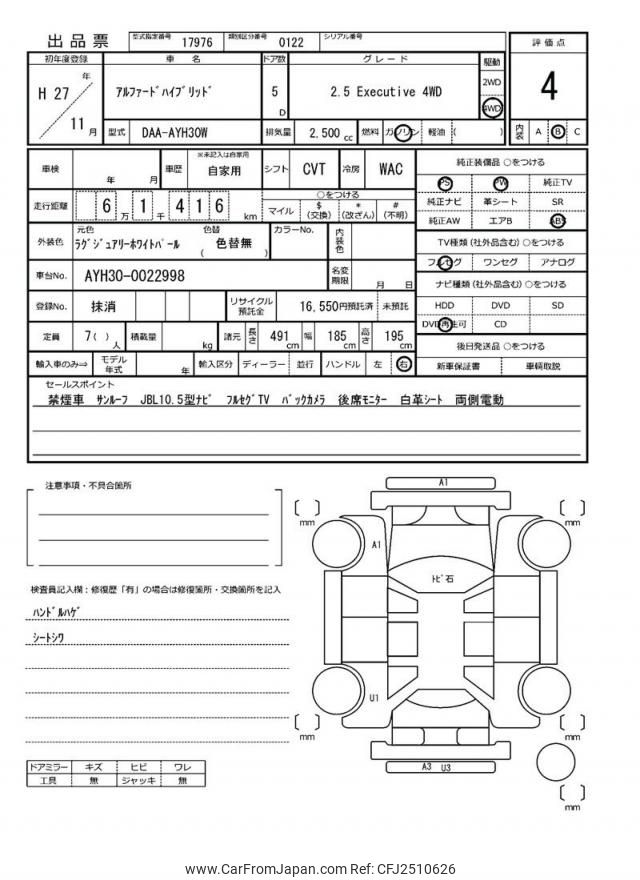 出品票 型式指定番号 17976 類別区分番号 0122 シリアル番号
初年度登録 車名 ドア数 グレード 駆動 評価点
H 27 年 11 月 アルファードハイブリッド 5 D 2.5 Executive 4WD 2WD 4WD 4
型式 DAA-AYH30W 排気量 2,500 cc 燃料 ガソリン 軽油 ( ) 内装 A B C
車検 年 月 車歴 ※未記入は自家用 自家用 シフト CVT 冷房 WAC
走行距離 6 万 1 千 4 1 6 km ○をつける マイル $ (交換) * (改ざん) # (不明)
外装色 元色 ラグジュアリーホワイトパール 色替 色替無 ( ) カラーNo. 内装色
車台No. AYH30-0022998 名変期限 月 日
登録No. 抹消 リサイクル預託金 16,550円預託済 未預託
定員 7( )人 積載量 kg 諸元 長さ 491 cm 幅 185 cm 高さ 195 cm
輸入車のみ⇒ モデル年式 年 輸入区分 ディーラー 並行 ハンドル 左 右
純正装備品 ○をつける
PS PW 純正TV
純正ナビ 革シート SR
純正AW エアB ABS
TV種類(社外品含む) ○をつける
フルセグ ワンセグ アナログ
ナビ種類(社外品含む) ○をつける
HDD DVD SD
DVD再生可 CD
後日発送品 ○をつける
新車保証書 車輌取説
セールスポイント
禁煙車 サンルーフ JBL10.5型ナビ フルセグTV バックカメラ 後席モニター 白革シート 両側電動
注意事項・不具合箇所
検査員記入欄：修復歴「有」の場合は修復箇所・交換箇所を記入
ハンドルハゲ
シートシワ
ドアミラー キズ ヒビ ワレ
工具 無 ジャッキ 無
A1
mm mm
A1
トビ石
U1
mm mm
A3 U3
mm
www.CarFromJapan.com Ref: CFJ2510626